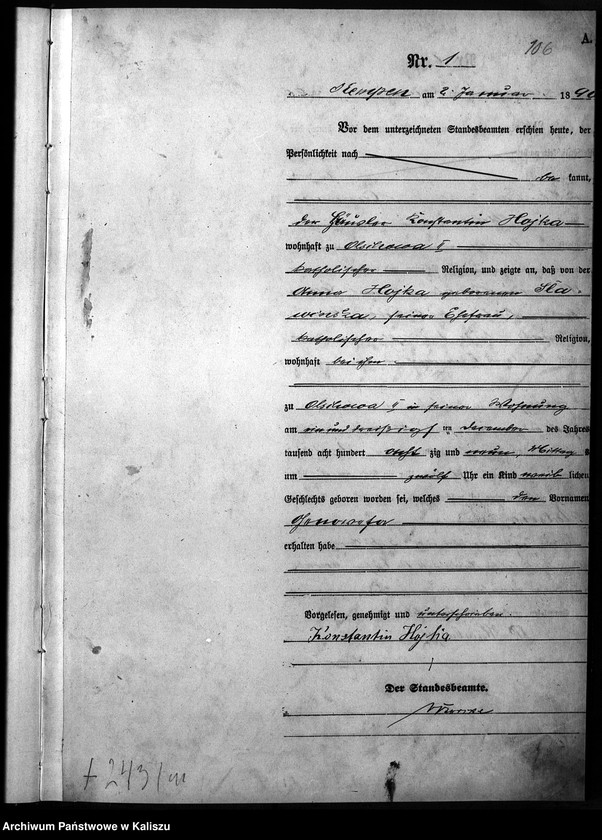 106
A.
Nr. 1
Kempen am 2. Januar 1890
Vor dem unterzeichneten Standesbeamten erschien heute, der
Persönlichkeit nach
be kannt,
der Häusler Konstantin Hojka
wohnhaft zu Olszowa II
katholischer Religion, und zeigte an, daß von der
Anna Hojka geborenen
seiner Ehefrau,
katholischer Religion,
wohnhaft bei ihm
zu Olszowa II in seiner Wohnung
am ein und dreißigsten December des Jahres
tausend acht hundert acht zig und neun, Mittags
um zwölf Uhr ein Kind weib lichen
Geschlechts geboren worden sei, welches den Vornamen
Genowefa
erhalten habe
Vorgelesen, genehmigt und unterschrieben.
Konstantin Hojka
Der Standesbeamte.
+ 243/
Archiwum Państwowe w Kaliszu